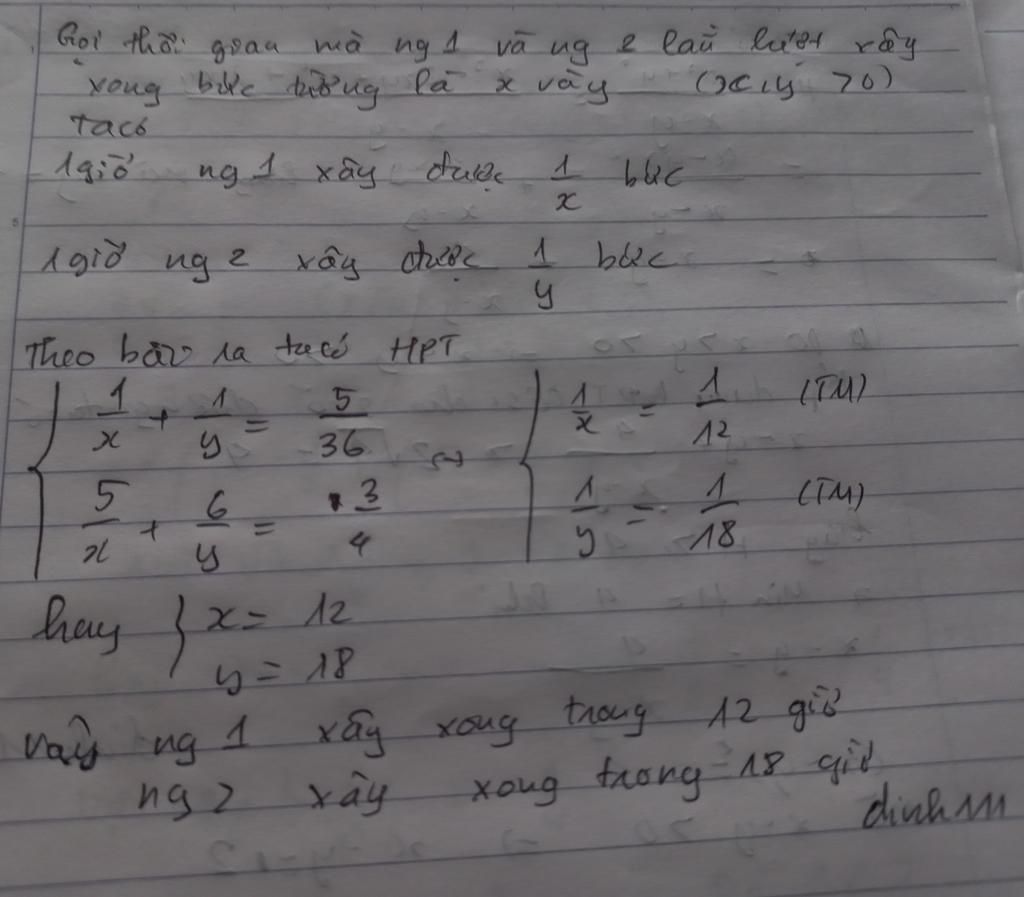 Gọi thời gian mà ng 1 và ng 2 lần lượt xây
xong bức tường là x và y (x, y > 0)
Ta có
1 giờ ng 1 xây được 1/x bức
1 giờ ng 2 xây được 1/y bức
Theo bài ra ta có HPT
{ 1/x + 1/y = 5/36 <=> { 1/x = 1/12 (TM)
5/x + 6/y = 3/4 1/y = 1/18 (TM)
hay { x = 12
y = 18
Vậy ng 1 xây xong trong 12 giờ
ng 2 xây xong trong 18 giờ